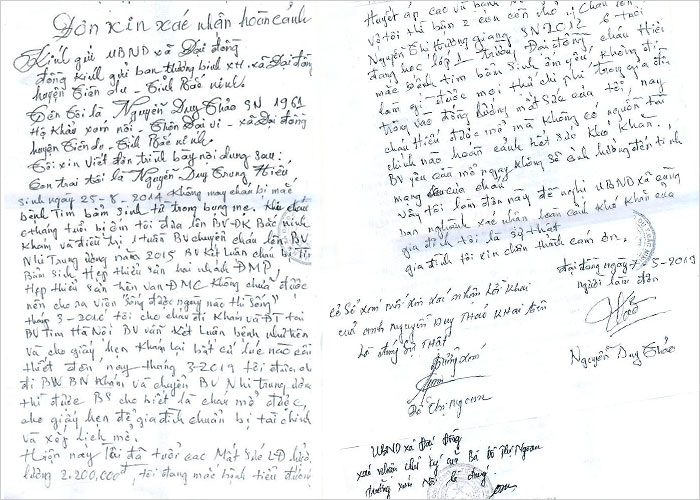 Đơn xin xác nhận hoàn cảnh
Kính gửi UBND xã Đại đồng
đồng Kính gửi ban thương binh XH. xã Đại đồng
huyện Tiên du - Tỉnh Bắc ninh.
Tên tôi là, Nguyễn Duy Thảo SN 1961
Hộ khẩu xóm nội - thôn Đại vi - xã Đại đồng
huyện Tiên du - Tỉnh Bắc ninh.
Tôi xin viết đơn trình bày nội dung sau:
Con trai tôi là Nguyễn Duy Trung Hiếu
Sinh ngày 25-8-2014 không may cháu bị mắc
bệnh Tim bẩm sinh từ trong bụng mẹ, khi cháu
tháng tuổi bị ốm tôi đưa lên BV-ĐK Bắc ninh
khám và điều trị 1 tuần BV chuyển cháu lên BV
Nhi Trung ương năm 2015 BV kết luận cháu bị Tim
Bẩm Sinh Hẹp thiểu sản hai nhánh ĐMP,
Hẹp thiểu sản trên van ĐMC không chữa được
nên cho ra viện "sống được ngày nào thì sống"
tháng 3-2016 tôi cho cháu đi khám và ĐT tại
BV Tim Hà Nội BV vẫn kết luận bệnh như trên
và cho giấy hẹn khám lại bất cứ lúc nào cần
thiết đến nay tháng 3-2019 tôi đưa
đi khám và chuyển BV Nhi trung ương
thì được BS cho biết là cháu mổ được,
cho giấy hẹn để gia đình chuẩn bị tài chính
và xếp lịch mổ.
Hiện nay Tôi đã tuổi cao Mất sức LĐ
lương 2.200,000đ, tôi đang mắc bệnh tiểu đường
Huyết áp cao và
vợ tôi thì bận 2 con còn nhỏ. Cháu lớn
Nguyễn Thị Hương giang SN 2012 6 tuổi
đang học lớp 1 trường Đại đồng, cháu Hiếu
mắc bệnh tim bẩm sinh ốm yếu, không đi
làm gì được mọi thứ chi phí trong gia đình
trông vào đồng lương mất sức của tôi, nay
cháu Hiếu được mổ mà không có nguồn tài
chính nào hoàn cảnh hết sức khó khăn.
BV yêu cầu mổ ngay không sẽ ảnh hưởng đến tính
mạng của cháu
Vậy tôi làm đơn này đề nghị UBND xã cùng
ban nghành xác nhận hoàn cảnh khó khăn của
gia đình tôi là sự thật
gia đình tôi xin chân thành cám ơn.
Đại đồng ngày 3-2019
người làm đơn
Nguyễn Duy Thảo
xác nhận lời khai
của anh Nguyễn Duy Thảo khai trên
là đúng sự thật
Trưởng xóm
UBND xã Đại đồng
xác nhận chữ ký của Bà
trưởng xóm Nội là đúng.